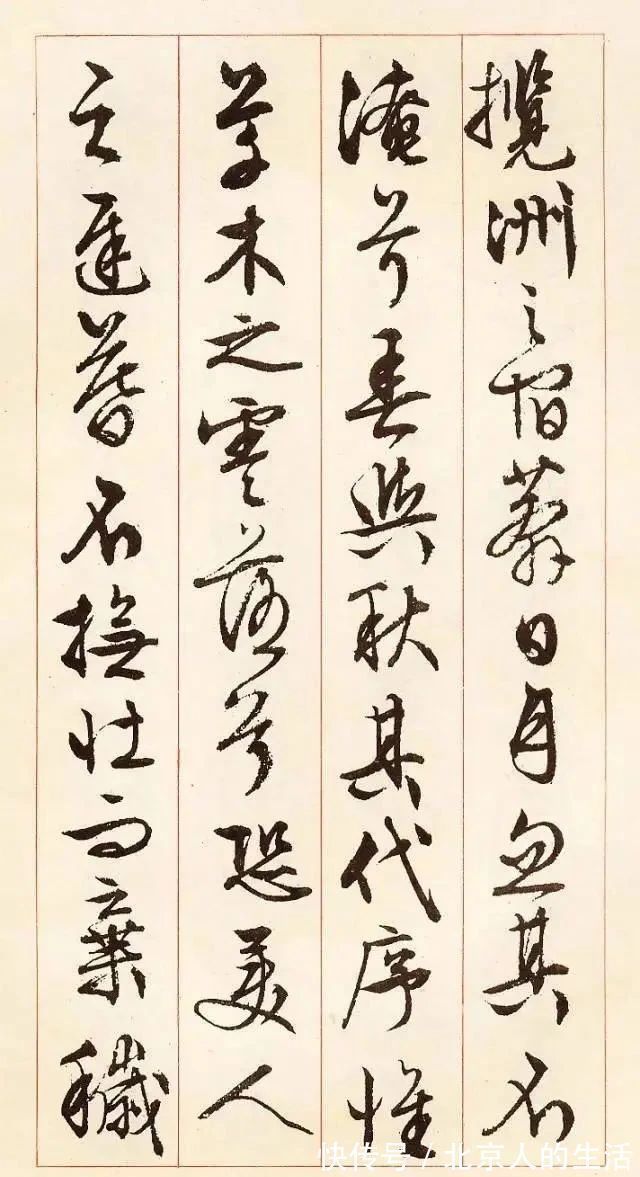 攬洲之宿莽日月忽其不
淹兮春與秋其代序惟
草木之零落兮恐美人
之遲暮不撫壯而棄穢
快传号 / 北京人的生活